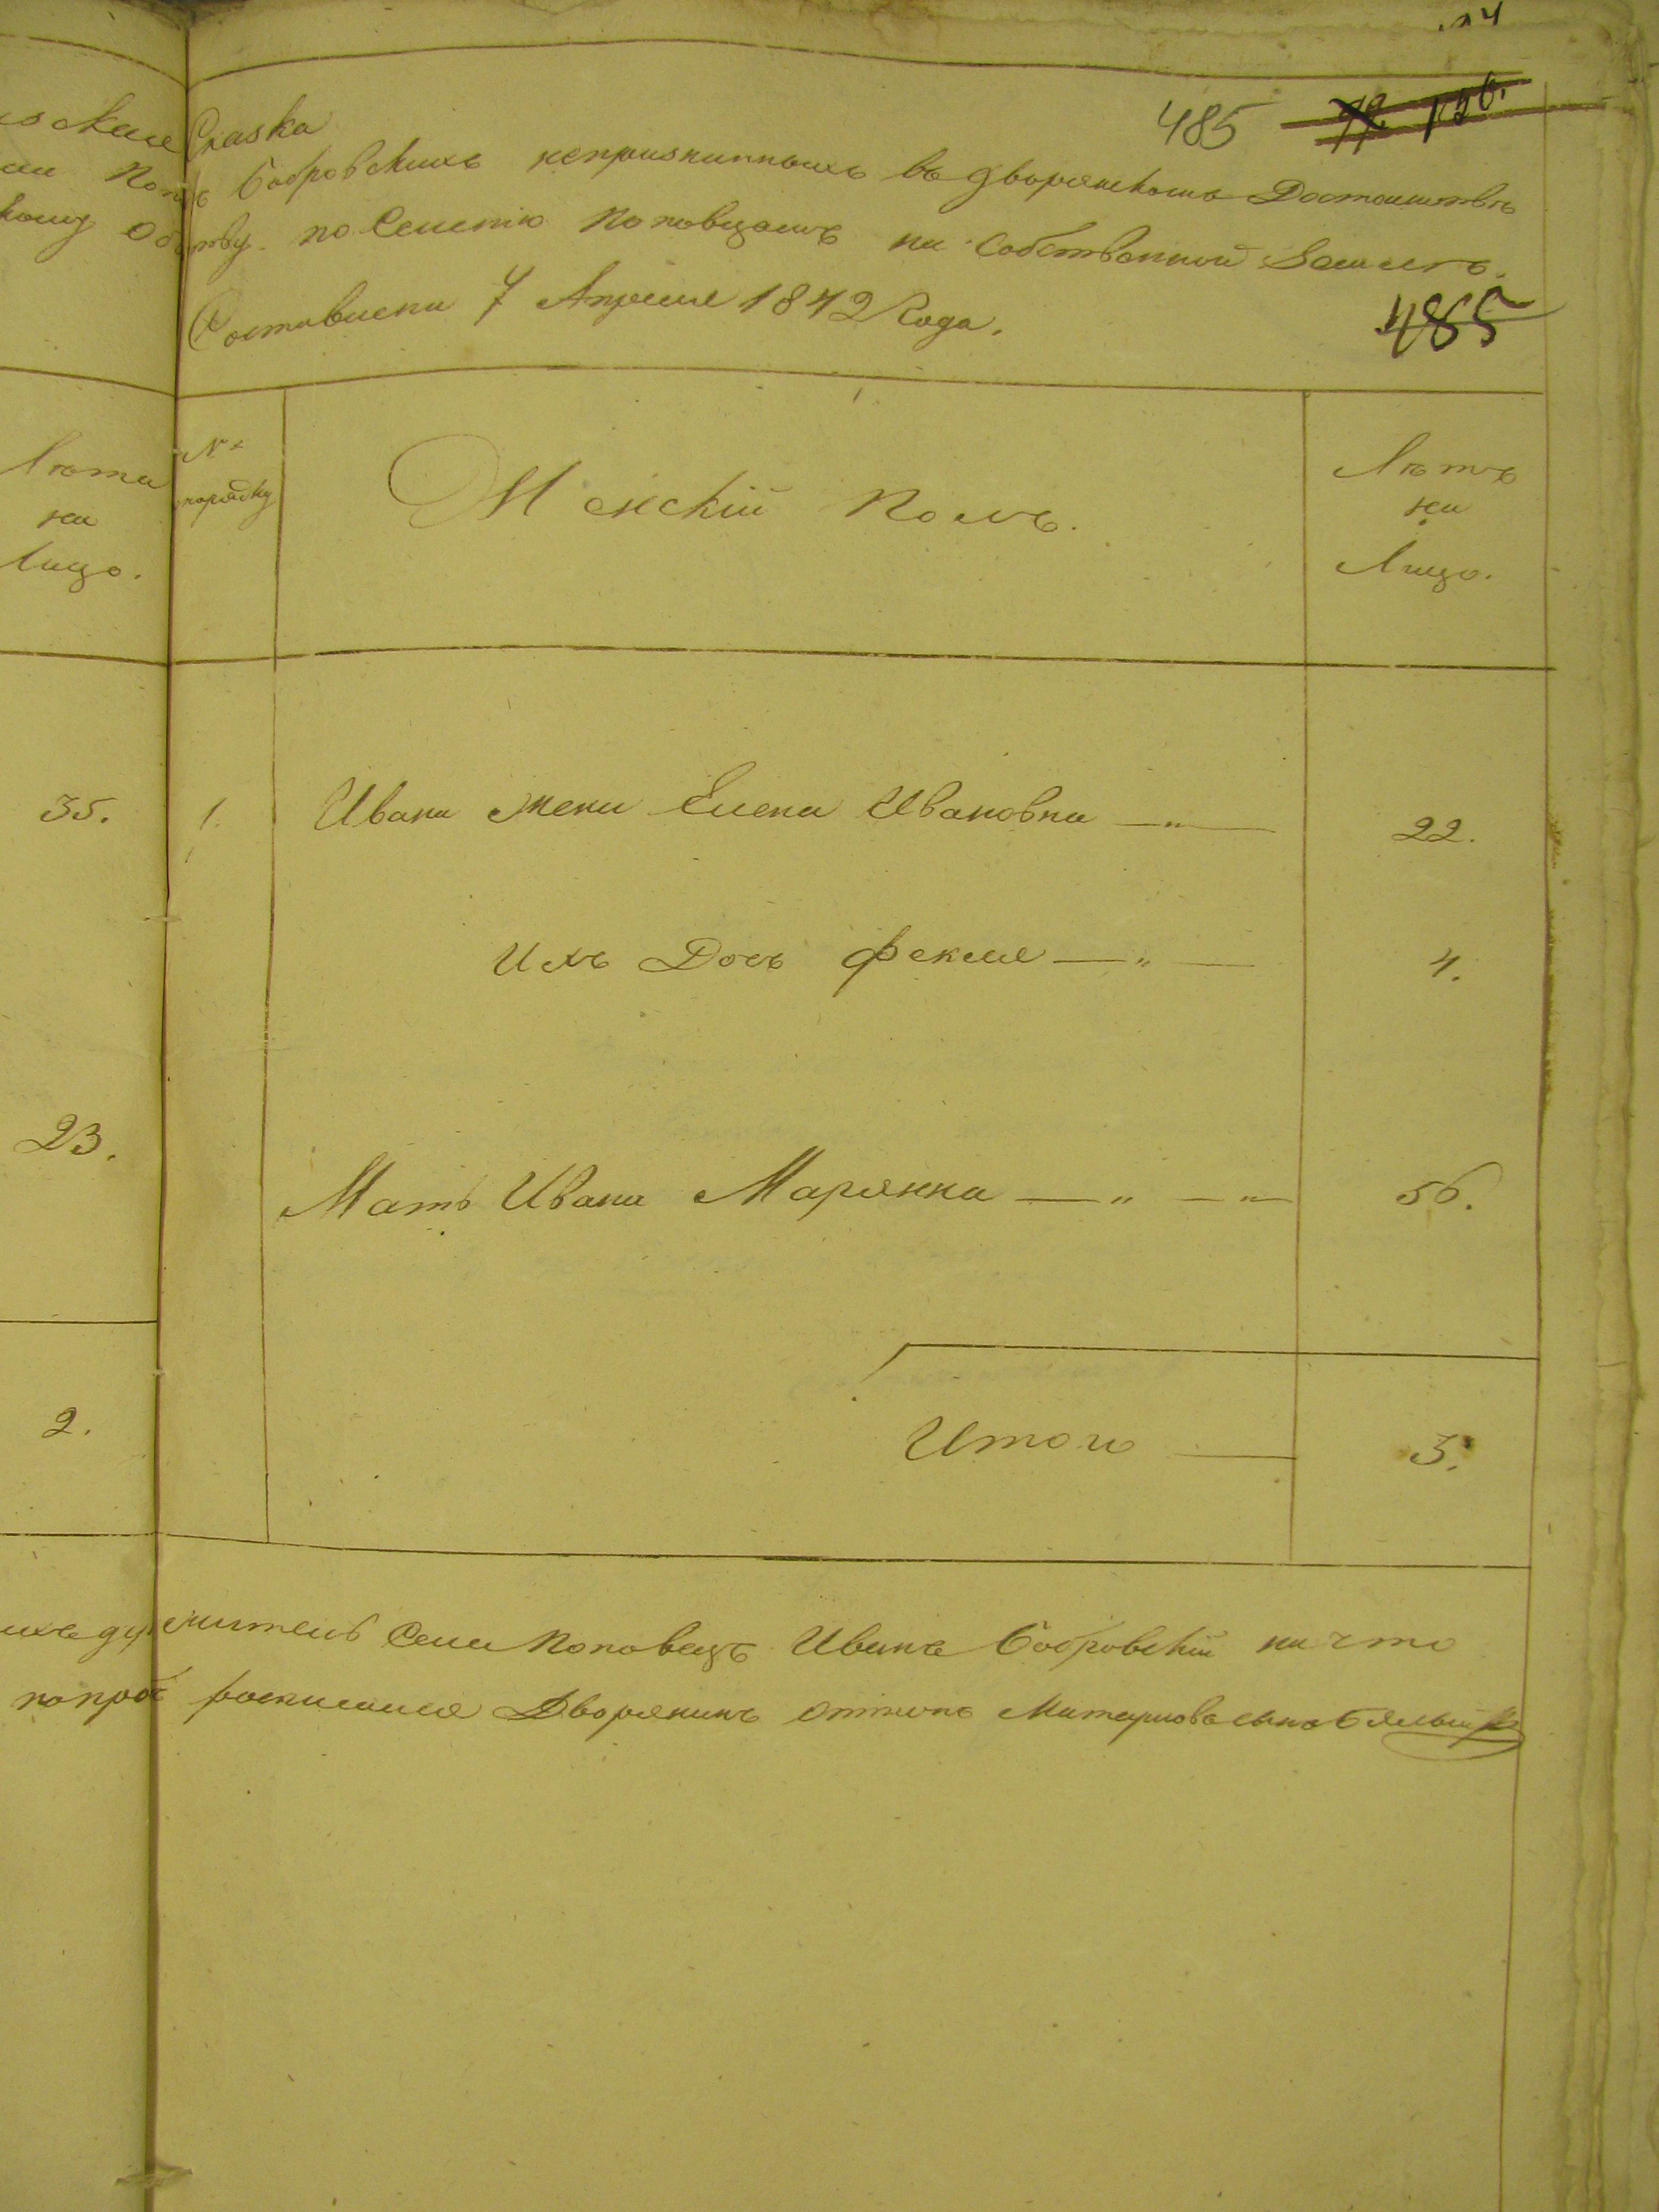 485
Сказка
Бобровскихъ непризнанныхъ въ дворянскомъ Достоинствѣ
по Селенію Поповцамъ на Собственной Землѣ.
Составлена 7 Апреля 1842 Года.
485
Лѣта
на
Лицо.
№
порядку
Женскій Полъ.
Лѣтъ
на
Лицо.
35.
1.
Ивана Жена Елена Ивановна
22.
Ихъ Дочь Фекля
4.
23.
Мать Ивана Марянна
56.
2.
Итого
3.
житель Села Поповецъ Иванъ Бобровскій на что
росписался Дворянинъ Антонъ сынъ